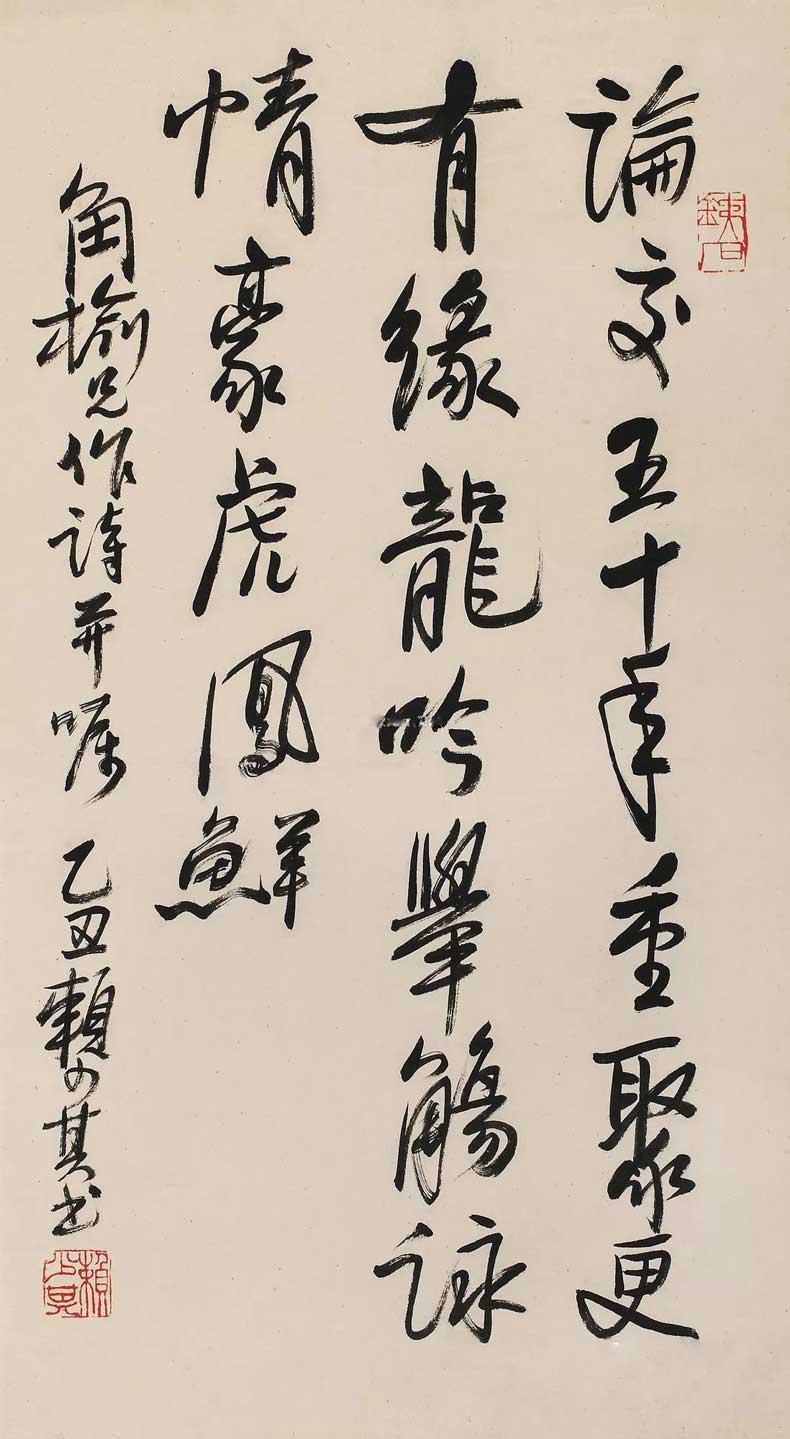 論交五十年重聚更
有緣龍吟舉觴詠
情豪虎鳳鮮
角榆兄作詩并嘱 乙丑賴少其书
賴少其